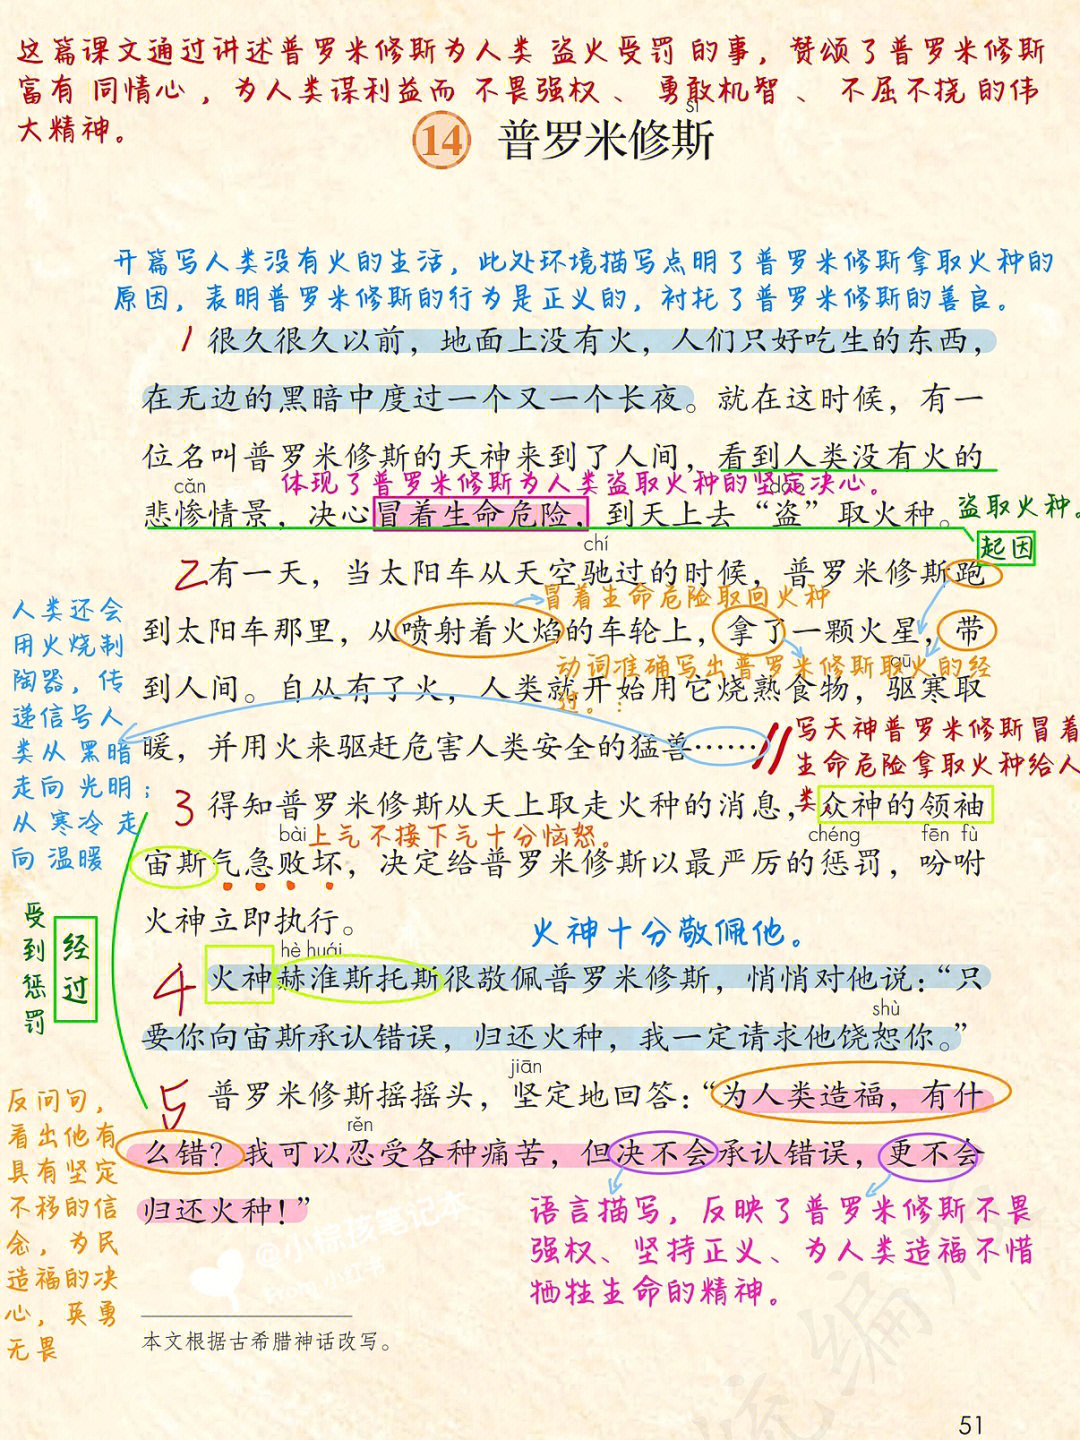 这篇课文通过讲述普罗米修斯为人类 盗火受罚 的事，赞颂了普罗米修斯
富有 同情心，为人类谋利益而 不畏强权 、 勇敢机智 、 不屈不挠 的伟
大精神。
sī
14 普罗米修斯
开篇写人类没有火的生活，此处环境描写点明了普罗米修斯拿取火种的
原因，表明普罗米修斯的行为是正义的，衬托了普罗米修斯的善良。
1 很久很久以前，地面上没有火，人们只好吃生的东西，
在无边的黑暗中度过一个又一个长夜。就在这时候，有一
位名叫普罗米修斯的天神来到了人间，看到人类没有火的
体现了普罗米修斯为人类盗取火种的坚定决心。
cǎn dào
悲惨情景，决心冒着生命危险，到天上去“盗”取火种。
盗取火种。
起因
chí
2 有一天，当太阳车从天空驰过的时候，普罗米修斯跑
冒着生命危险取向火种
到太阳车那里，从喷射着火焰的车轮上，拿了一颗火星，带
动词准确写出普罗米修斯取火的经
过。
qū
到人间。自从有了火，人类就开始用它烧熟食物，驱寒取
暖，并用火来驱赶危害人类安全的猛兽……
人类还会
用火烧制
陶器，传
递信号人
类从 黑暗
走向 光明；
从 寒冷 走
向 温暖
写天神普罗米修斯冒着
生命危险拿取火种给人
类
3 得知普罗米修斯从天上取走火种的消息，众神的领袖
上气不接下气十分恼怒。
bài chéng fēn fù
宙斯气急败坏，决定给普罗米修斯以最严厉的惩罚，吩咐
火神立即执行。
火神十分敬佩他。
受到惩罚
经过
hè huái
4 火神赫淮斯托斯很敬佩普罗米修斯，悄悄对他说：“只
shù
要你向宙斯承认错误，归还火种，我一定请求他饶恕你。”
jiān
5 普罗米修斯摇摇头，坚定地回答：“为人类造福，有什
rěn
么错？我可以忍受各种痛苦，但决不会承认错误，更不会
归还火种！”
反问句，
看出他有
具有坚定
不移的信
念，为民
造福的决
心，英勇
无畏
语言描写，反映了普罗米修斯不畏
强权、坚持正义、为人类造福不惜
牺牲生命的精神。
本文根据古希腊神话改写。
51